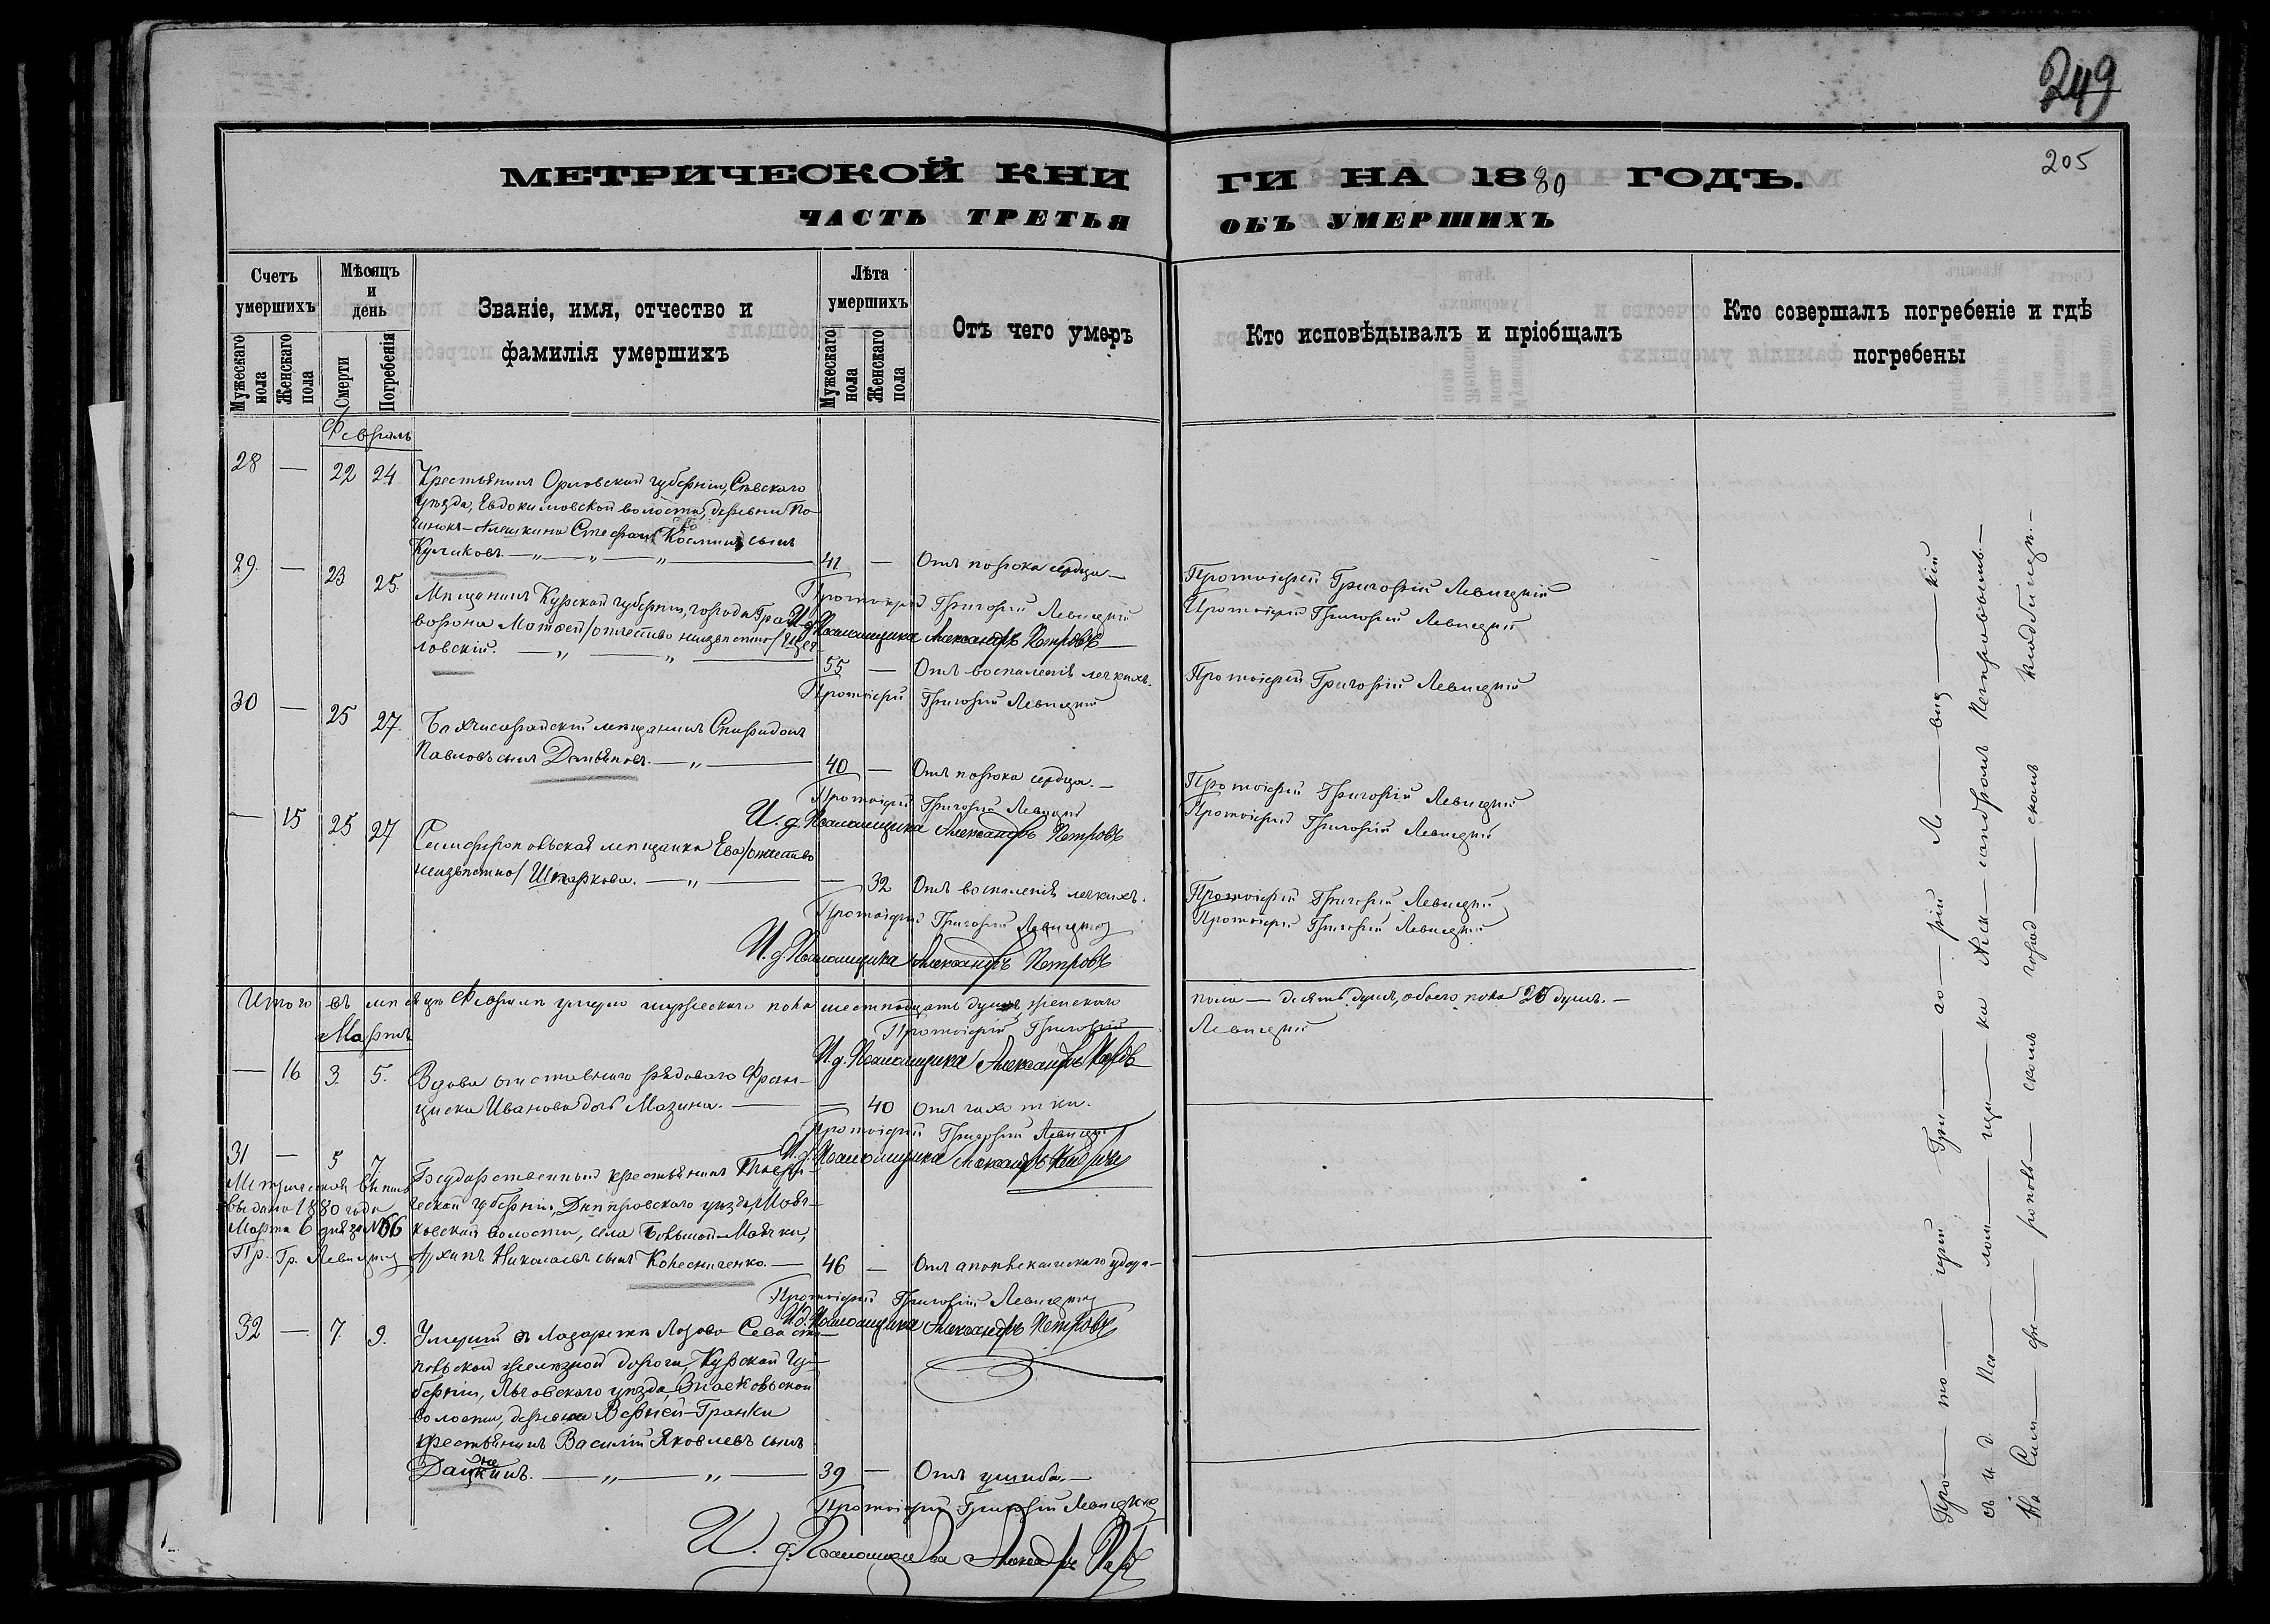 249
205
МЕТРИЧЕСКОЙ КНИ
ГИ НА 1880 ГОДЪ.
ЧАСТЬ ТРЕТЬЯ
ОБЪ УМЕРШИХЪ
Счетъ умершихъ
Мужескаго пола
Женскаго пола
Мѣсяцъ и день
Смерти
Погребенія
Званіе, имя, отчество и фамилія умершихъ
Лѣта умершихъ
Мужескаго пола
Женскаго пола
Отъ чего умеръ
Кто исповѣдывалъ и пріобщалъ
Кто совершалъ погребеніе и гдѣ погребены
Февраль
28 — 22 24 Крестьянинъ Орловской губерніи, Сѣвскаго
уѣзда, Евдокимовской волости, деревни По-
чинокъ-Алешкина Стефанъ Косминъ сынъ
Куликовъ. — „ — „ — „ — 41 — Отъ порока сердца —
Протоіерей Григорій Левицкій
И. д. Псаломщика Александръ Петровъ
Протоіерей Григорій Левицкій
29. — 23 25. Мѣщанинъ Курской губерніи, города Грай-
ворона Матвей /отчество неизвѣстно/
ловскій. — „ — „ — 55 — Отъ воспаленія легкихъ.
Протоіерей Григорій Левицкій
Протоіерей Григорій Левицкій
Протоіерей Григорій Левицкій
30 — 25 27. Бахчисарайскій мѣщанинъ Спиридонъ
Павловъ сынъ — „ — 40 — Отъ порока сердца. —
Протоіерей Григорій Левицкій
И. д. Псаломщика Александръ Петровъ
Протоіерей Григорій Левицкій
Протоіерей Григорій Левицкій
— 15 25 27 Симферопольская мѣщанка Ева /отчество
неизвѣстно/ Шпаркова. — „ — — 32 Отъ воспаленія легкихъ.
Протоіерей Григорій Левицкій
И. д. Псаломщика Александръ Петровъ
Протоіерей Григорій Левицкій
Протоіерей Григорій Левицкій
Итого въ мѣсяцѣ Февралѣ умерло мужескаго пола шестнадцать душъ, женскаго
пола — десять душъ, обоего пола 26 душъ. —
Протоіерей Григорій
Левицкій
И. д. Псаломщика Александръ Петровъ
Мартъ
— 16 3. 5. Вдова отставнаго рядоваго Фран-
циска Иванова дочь Мазина. — — 40 Отъ чахотки.
Протоіерей Григорій Левицкій
И. д. Псаломщика Александръ Петровъ
31 — 5 7 Государственный крестьянинъ Таври-
ческой губерніи, Днѣпровскаго уѣзда, Маяч-
ковской волости, села Большой-Маячки,
Архипъ Николаевъ сынъ Колесниченко. — 46 — Отъ апоплексическаго удара —
Метрическая выпись
выдана 1880 года
Марта 6 дня за № 66
Пр. Гр. Левицкій
Протоіерей Григорій Левицкій
И. д. Псаломщика Александръ Петровъ
32 — 7. 9. Умершій въ Лазаретѣ Лозово Севасто-
польской желѣзной дороги, Курской Гу-
берніи, Льговскаго уѣзда,
волости, деревни Верхней-Гранки
крестьянинъ Василій Яковлевъ сынъ
— „ — „ — 39 — Отъ ушиба. —
Протоіерей Григорій Левицкій
И. д. Псаломщика Александръ Петровъ
Про — то — іерей Гри — го — рій Ле — виц — кій
съ И. д. Пса — лом — щи — ка Алек — сандромъ Петровымъ. —
На Сим — фе — рополь — скомъ город — скомъ кладбищѣ. —